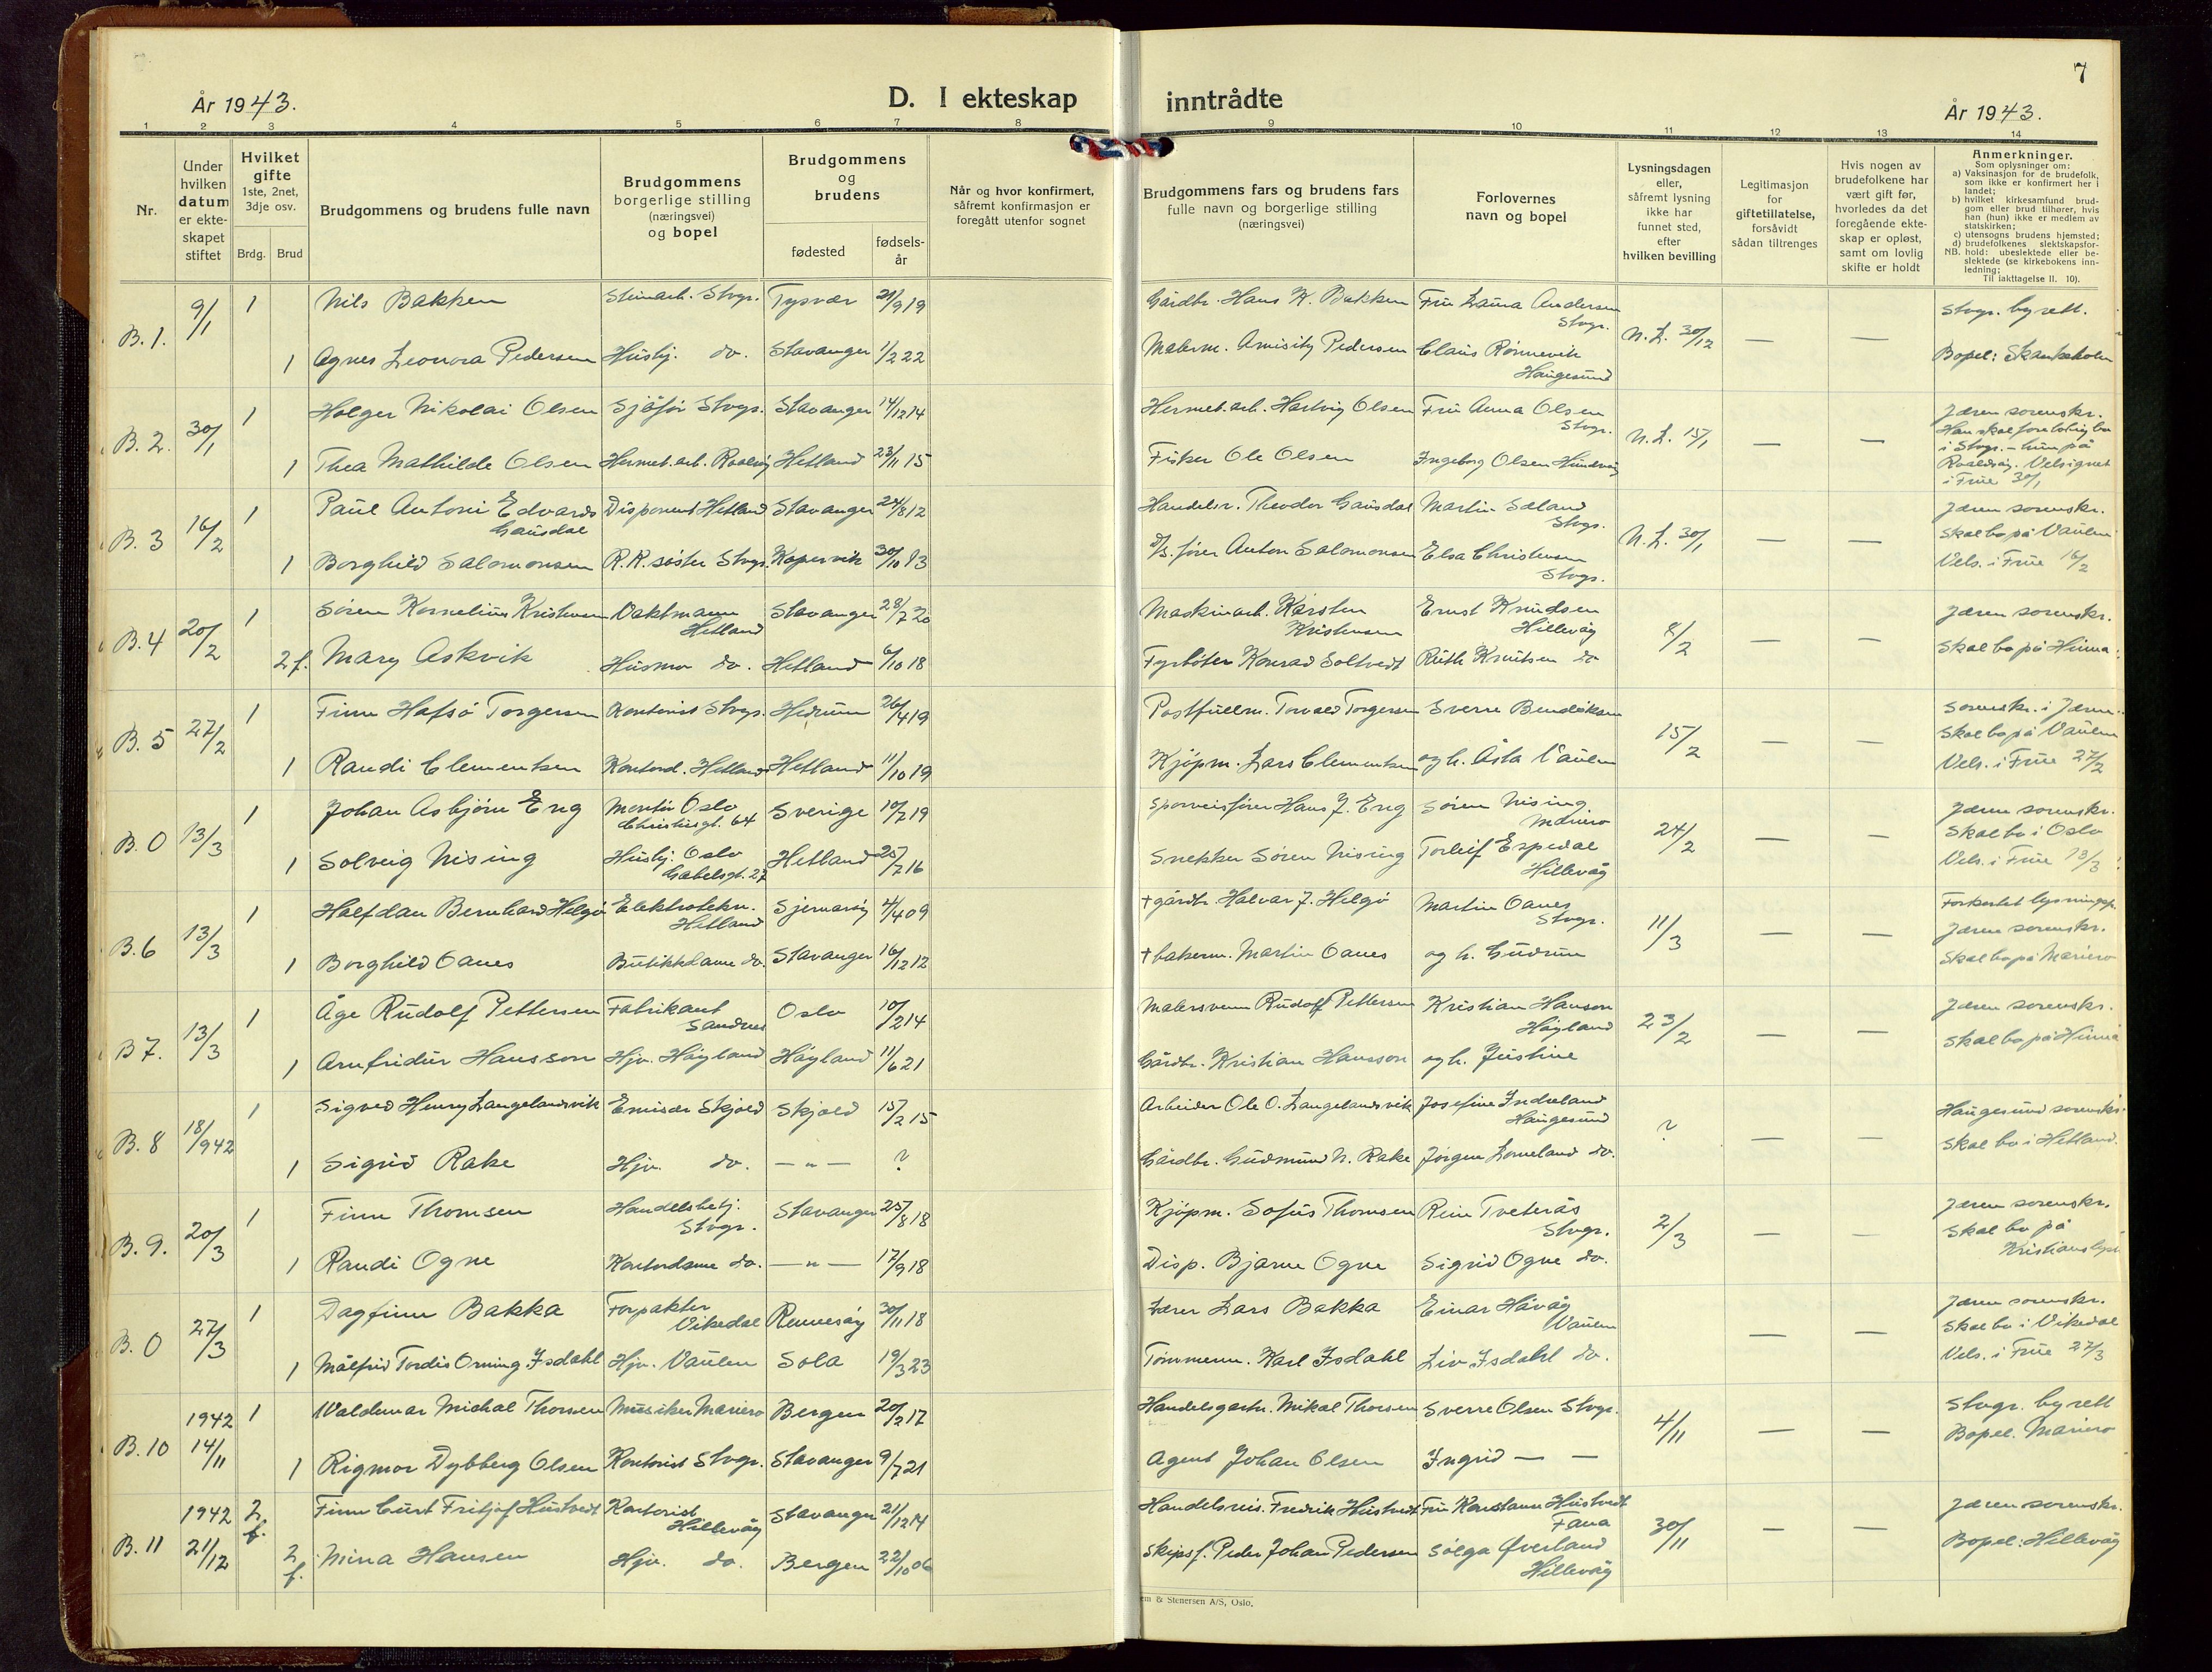 7
År 1943.
D. I ekteskap inntrådte
År 1943.
1 2 3 4 5 6 7 8 9 10 11 12 13 14
Nr.
Under hvilken datum er ekteskapet stiftet
Hvilket gifte 1ste, 2net, 3dje osv.
Brdg. Brud
Brudgommens og brudens fulle navn
Brudgommens borgerlige stilling (næringsvei) og bopel
Brudgommens og brudens
fødested
fødselsår
Når og hvor konfirmert, såfremt konfirmasjon er foregått utenfor sognet
Brudgommens fars og brudens fars fulle navn og borgerlige stilling (næringsvei)
Forlovernes navn og bopel
Lysningsdagen eller, såfremt lysning ikke har funnet sted, efter hvilken bevilling
Legitimasjon for giftetillatelse, forsåvidt sådan tiltrenges
Hvis nogen av brudefolkene har vært gift før, hvorledes da det foregående ekteskap er opløst, samt om lovlig skifte er holdt
Anmerkninger.
Som oplysninger om:
a) Vaksinasjon for de brudefolk, som ikke er konfirmert her i landet;
b) hvilket kirkesamfund brudgom eller brud tilhører, hvis han (hun) ikke er medlem av statskirken;
c) utensogns brudens hjemsted;
d) brudefolkenes slektskapsforhold: ubeslektede eller beslektede (se kirkebokens innledning;
NB. Til iakttagelse II. 10).
B. 1. 9/1 1 Nils Bakken Steinarb. Stvgr. Tysvær 21/9 19 Gårdbr. Hans K. Bakken Fru Laura Andersen Stvgr. N.L. 30/12 — — Stvgr. byrett.
1 Agnes Leonora Pedersen Husbj. do. Stavanger 1/2 22 Malerm. Pedersen Claus Rønnevik Haugesund Bopel: Skankeholm
B. 2. 30/1 1 Holger Nikolai Olsen Sjåfør Stvgr. Stavanger 14/12 14 Hermet.arb. Hartvig Olsen Fru Anna Olsen Stvgr. N.L. 15/1 — — Jæren sorenskr.
Han skal foreløbig bo i Stvgr. – hun på Roaldsøy. Velsignet i Frue 30/1
1 Thea Mathilde Olsen Hermet.arb. Roaldsøy Hetland 23/11 15 Fisker Ole Olsen Ingeborg Olsen Hundvåg
B. 3 16/2 1 Paul Antoni Edvards Gausdal Disponent Hetland Stavanger 24/8 12 Handelsr. Theodor Gausdal Martin Saland Stvgr. N.L. 30/1 — — Jæren sorenskr.
Skal bo på Vaulen
1 Borghild Salomonsen R.K. søster Stvgr. Kopervik 30/10 13 fører Anton Salomonsen Elsa Christensen Stvgr. Vels. i Frue 16/2
B. 4 20/2 1 Søren Kornelius Kristensen Vaktmann Hetland Stavanger 28/7 20 Maskinarb. Karsten Kristensen Ernst Knudsen Hillevåg 8/2 — — Jæren sorenskr.
2 f. Mary Askvik Husmor do. Hetland 6/10 18 Fyrbøter Konrad Soltvedt Ruth Knutsen do Skal bo på Hinna
B. 5 27/2 1 Finn Hafsø Torgersen Kontorist Stvgr. Hedrum 26/4 19 Postfullm. Torvald Torgersen Sverre Bendiksen 15/2 — — Sorenskr. i Jæren.
Skal bo på Vaulen
1 Randi Clementsen Kontord. Hetland Hetland 11/10 19 Kjøpm. Lars Clementsen og h. Åsta Vaulen Vels. i Frue 27/2
B. 0 13/3 1 Johan Asbjørn Eng Montør Oslo Christiesgt. 64 Sverige 10/7 19 Sporveisfører Hans J. Eng Søren Nising Mariero 24/2 — — Jæren sorenskr.
Skal bo i Oslo
1 Solveig Nising Husbj. Oslo Gabelsgt. 27 Hetland 25/7 16 Snekker Søren Nising Torleif Espedal Hillevåg Vels. i Frue 13/3
B. 6 13/3 1 Halfdan Bernhard Helgø Elektrotekn. Hetland Sjernarøy 4/4 09 + gårdbr. Halvar J. Helgø Martin Oanes Stvgr. 11/3 — — Forkortet lysningsp.
Jæren sorenskr.
1 Borghild Oanes Butikkdame do. Stavanger 16/12 12 + bakerm. Martin Oanes og h. Gudrun Skal bo på Mariero
B 7. 13/3 1 Åge Rudolf Pettersen Fabrikant Sandnes Oslo 10/2 14 Malersvenn Rudolf Pettersen Kristian Hansson Høyland 23/2 — — Jæren sorenskr.
1 Arnfridur Hansson Hjv. Høyland Høyland 11/6 21 Gårdbr. Kristian Hansson og h. Justine Skal bo på Hinna
B. 8 18/9 42 1 Sigved Henry Langelandsvik Emissær Skjold Skjold 15/2 15 Arbeider Ole O. Langelandsvik Josefine Indreland Haugesund ? — — Haugesund sorenskr.
1 Sigrid Rake Hjv. do. — „ — ? Gårdbr. Gudmund N. Rake Jørgen Lomeland do. Skal bo i Hetland.
B. 9. 20/3 1 Finn Thomsen Handelsbetj. Stvgr. Stavanger 25/8 18 Kjøpm. Sofus Thomsen Rein Tveterås Stvgr. 2/3 — — Jæren sorenskr.
Skal bo på Kristianslyst
1 Randi Ogne Kontordame do. — „ — 17/9 18 Disp. Bjarne Ogne Sigrid Ogne do.
B. 0 27/3 1 Dagfinn Bakka Forpakter Vikedal Rennesøy 30/11 18 Lærer Lars Bakka Einar Håvåg Vaulen — — Jæren sorenskr.
Skal bo i Vikedal
1 Målfrid Tordis Orning Isdahl Hjv. Vaulen Sola 19/3 23 Tømmerm. Karl Isdahl Liv Isdahl do. Vels. i Frue 27/3
B. 10 1942 14/11 1 Waldemar Michal Thorsen Musiker Mariero Bergen 20/2 17 Handelsgartn. Mikal Thorsen Sverre Olsen Stvgr. 4/11 — — Stvgr. byrett
1 Rigmor Dybberg Olsen Kontorist Stvgr. Stavanger 9/7 21 Agent Johan Olsen Ingrid — — Bopel. Mariero
B. 11 1942 21/12 2 f. Finn Curt Fritjof Hustvedt Kontorist Hillevåg Stavanger 21/12 14 Handelsreis. Fredrik Hustvedt Fru Konstanse Hustvedt Fana 30/11 — — Jæren sorenskr.
2 f. Mina Hansen Hjv. do. Bergen 22/10 06 Skipsf. Peder Johan Pedersen Solga Øverland Hillevåg Bopel: Hillevåg
em & Stenersen A/S, Oslo.